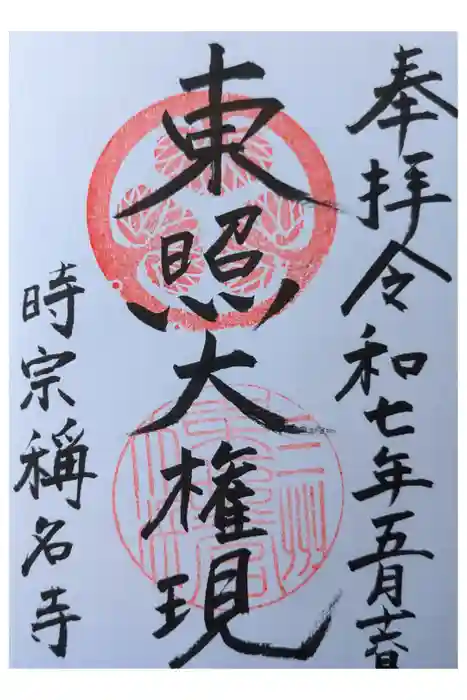 奉拝令和七年五月
東照大権現
時宗稱名寺